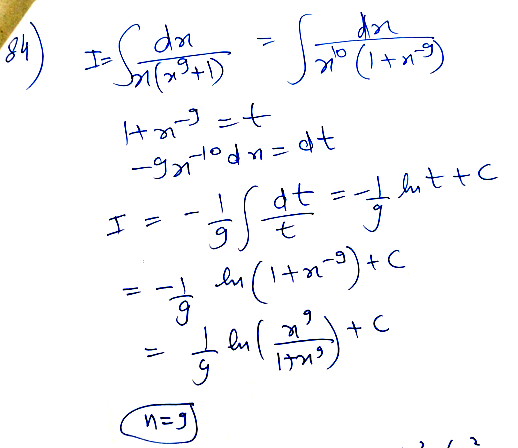 84) I = ∫ dx / x(x⁹+1) = ∫ dx / x¹⁰ (1+x⁻⁹)
1+x⁻⁹ = t
-9x⁻¹⁰dx = dt
I = -1/9 ∫ dt/t = -1/9 ln t + C
= -1/9 ln (1+x⁻⁹) + C
= 1/9 ln (x⁹/1+x⁹) + C
n=9